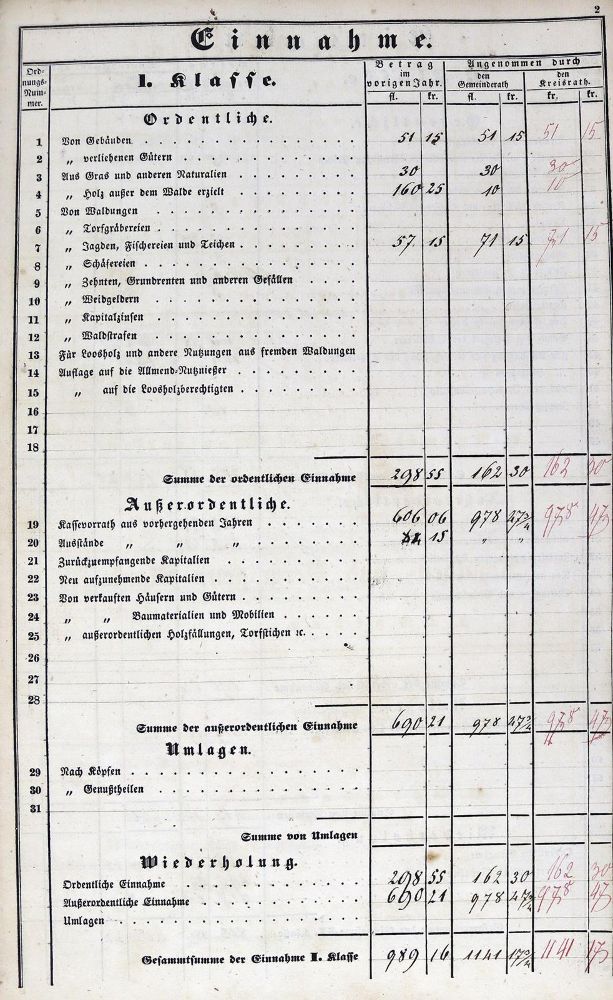 2
Einnahme.
Ord-
nungs-
Num-
mer.
I. Klasse.
Betrag
im
vorigen Jahr.
Angenommen durch
den
Gemeinderath
den
Kreisrath.
fl. kr. fl. kr. kr. kr.
Ordentliche.
1 Von Gebäuden 51 15 51 15 51 15
2 „ verliehenen Gütern
3 Aus Gras und anderen Naturalien 30 30 30
4 „ Holz außer dem Walde erzielt 160 25 10 10
5 Von Waldungen
6 „ Torfgräbereien
7 „ Jagden, Fischereien und Teichen 57 15 71 15 71 15
8 „ Schäfereien
9 „ Zehnten, Grundrenten und anderen Gefällen
10 „ Weidgeldern
11 „ Kapitalzinsen
12 „ Waldstrafen
13 Für Loosholz und andere Nutzungen aus fremden Waldungen
14 Auflage auf die Allmend-Nutznießer
15 „ auf die Loosholzberechtigten
16
17
18
Summe der ordentlichen Einnahme 298 55 162 30 162 30
Außerordentliche.
19 Kassevorrath aus vorhergehenden Jahren 606 06 978 47 3/4 978 47
20 Ausstände „ „ „ 84 15 „ „
21 Zurückzuempfangende Kapitalien
22 Neu aufzunehmende Kapitalien
23 Von verkauften Häusern und Gütern
24 „ „ Baumaterialien und Mobilien
25 „ außerordentlichen Holzfällungen, Torfstichen ꝛc.
26
27
28
Summe der außerordentlichen Einnahme 690 21 978 47 3/4 978 47
Umlagen.
29 Nach Köpfen
30 „ Genußtheilen
31
Summe von Umlagen
Wiederholung.
Ordentliche Einnahme 298 55 162 30 162 30
Außerordentliche Einnahme 690 21 978 47 3/4 978 47
Umlagen
Gesammtsumme der Einnahme I. Klasse 989 16 1141 17 3/4 1141 17